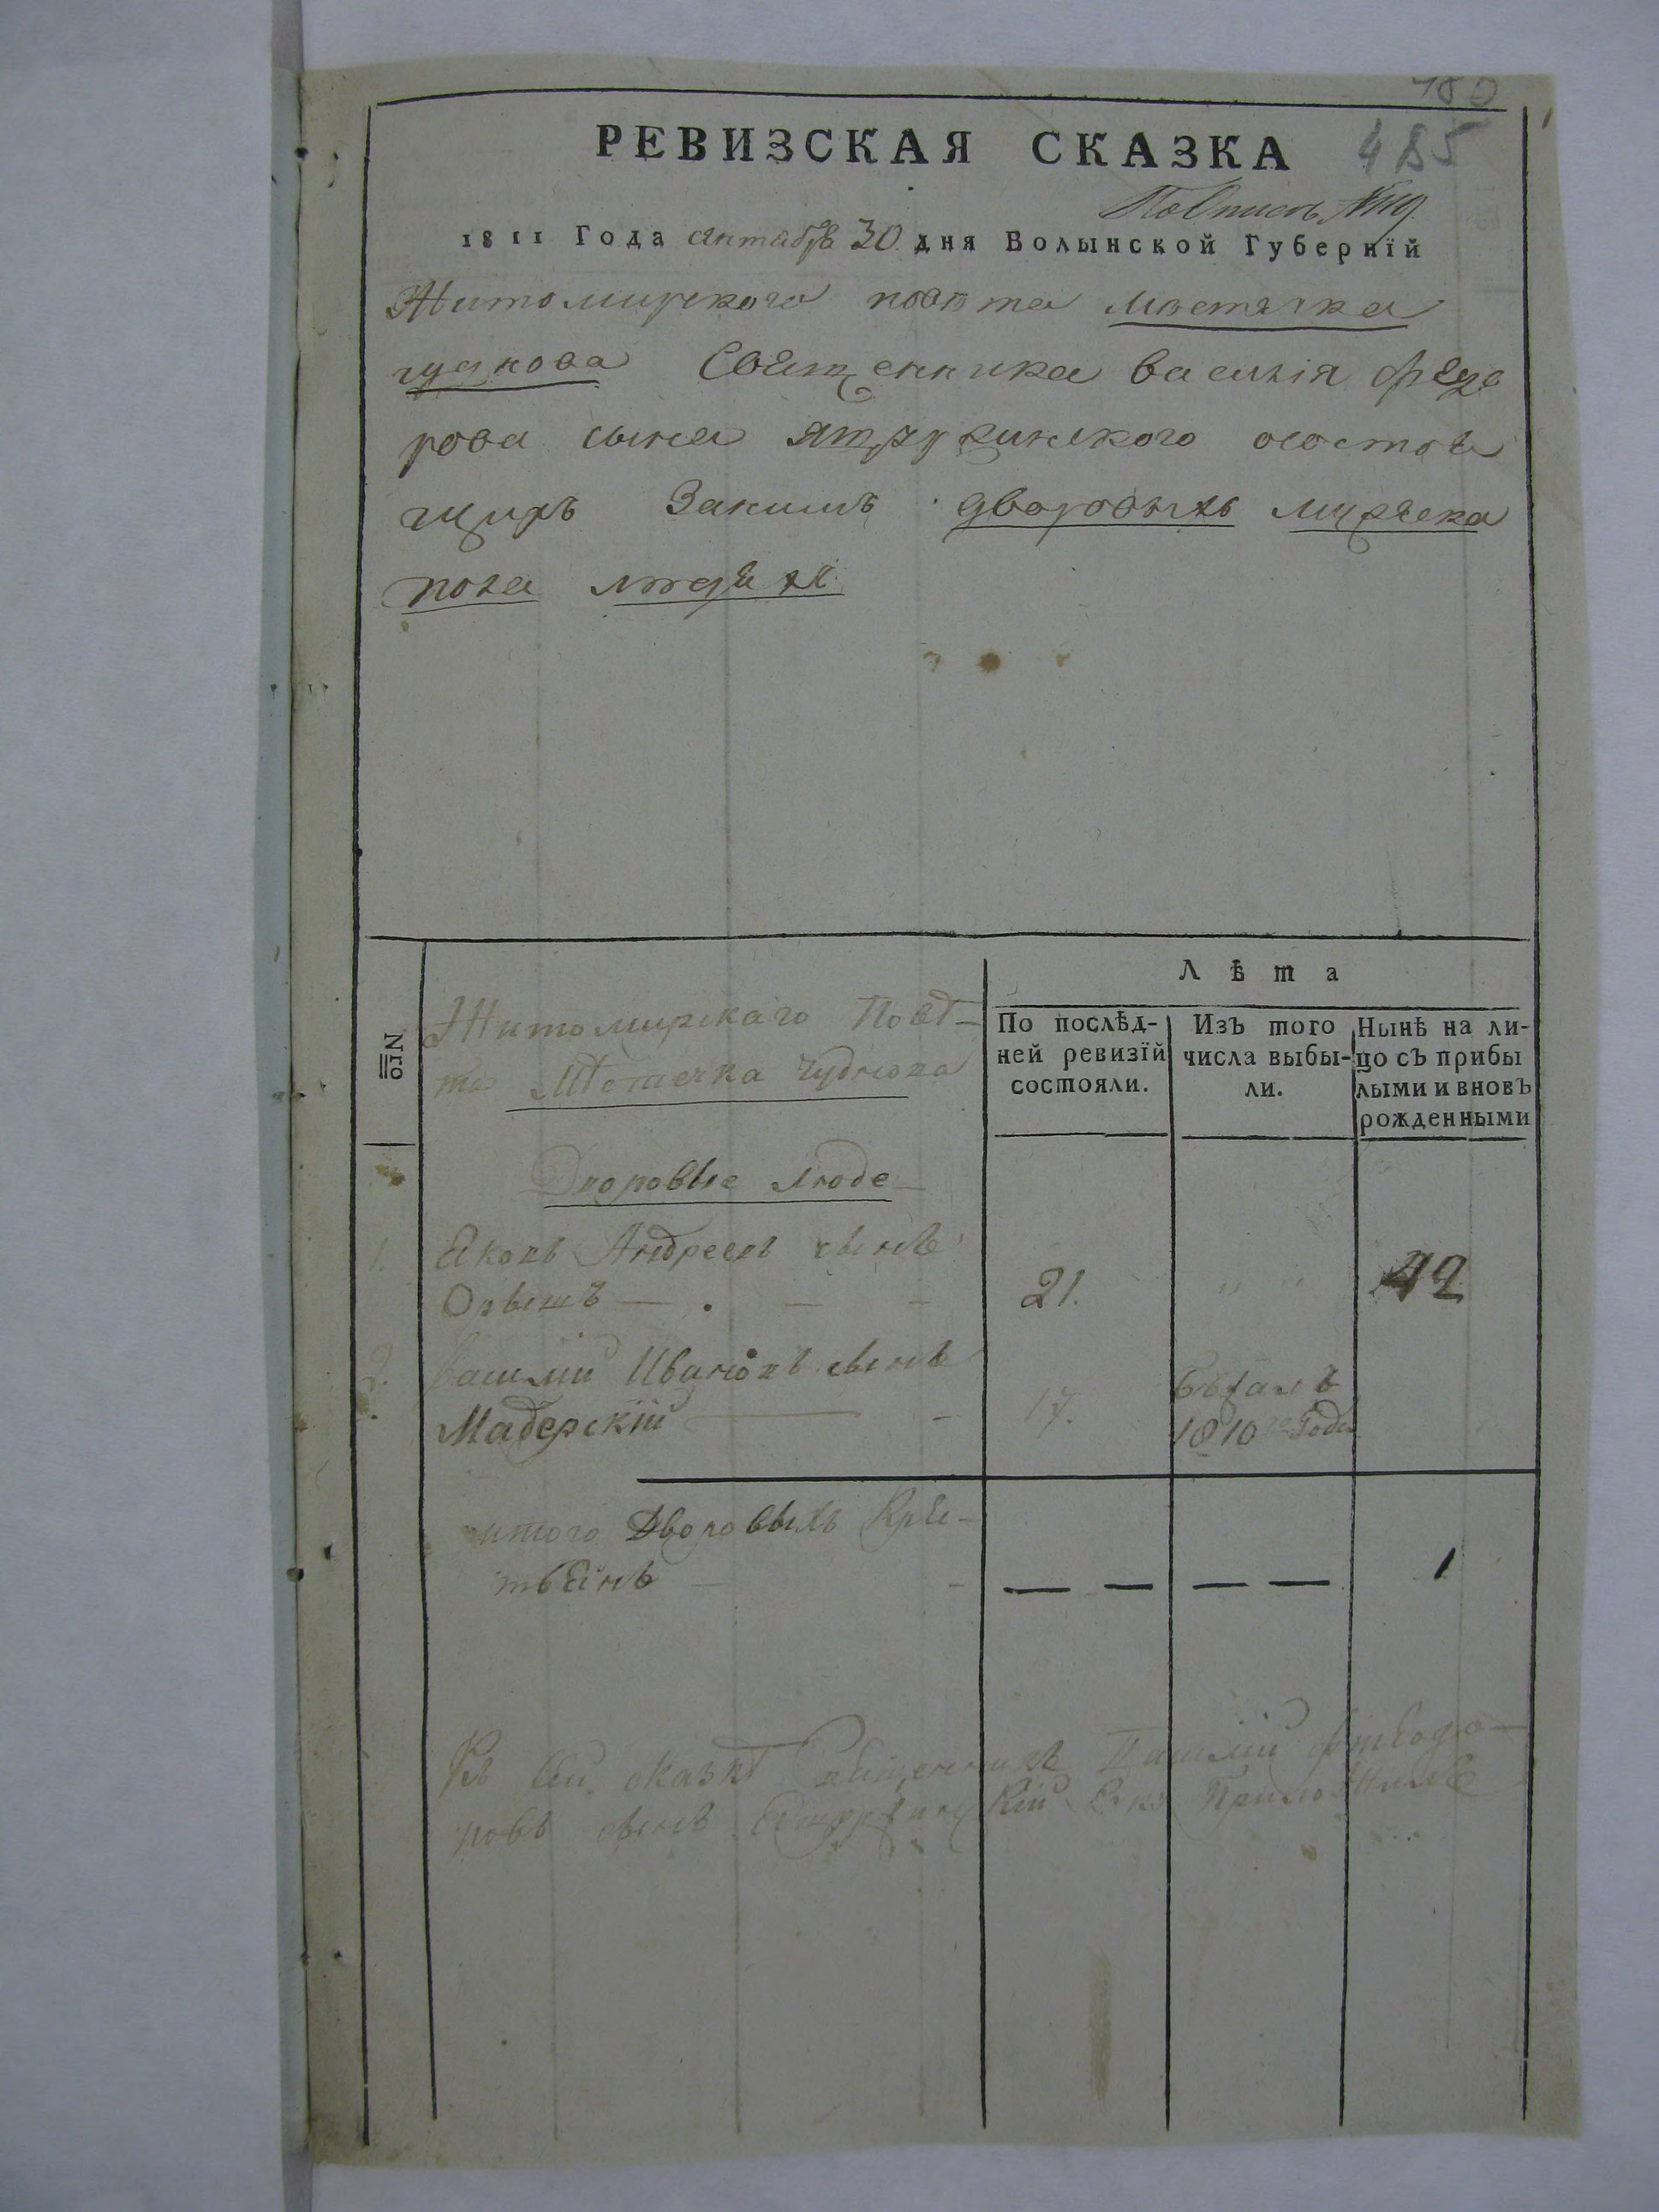 480
485
РЕВИЗСКАЯ СКАЗКА
1811 Года октабра 30 дня Волынской Губернїй
Житомирского повѣта мѣстечка
чуднова Священника василія феодо
рова сына состоя
щихъ Заиимъ дворовыхъ мужеска
пола людехъ
Nro
Житомирскаго Повѣ-
та Мѣстечка Чуднова
Лѣта
По послѣд-
ней ревизїй
состояли.
Изъ того
числа выбы-
ли.
Нынѣ на ли-
цо съ прибы
лыми и вновъ
рожденными
Дворовые люде
1. Яковъ Андреевъ сынъ
21. 42
2. Василий Ивановъ сынъ
Мадерскїй 17. бѣжалъ
1810 Года
итого Дворовыхъ Крес-
тьянъ 1
Къ сей сказкѣ Священникъ Василий Феодо-
ровъ сынъ руку Приложилъ